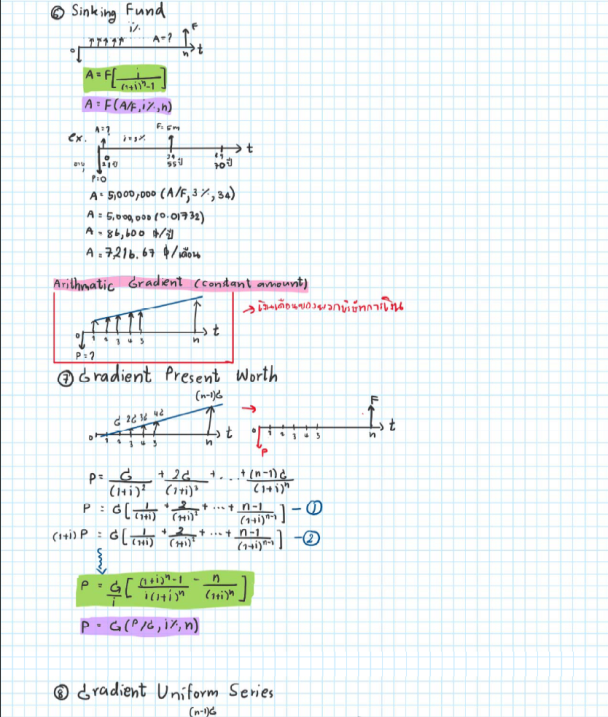 ⑥ Sinking Fund
i%
A=? F
0 n t
A = F[i/((1+i)^n-1)]
A = F(A/F, i%, n)
ex. A=? i=3% F=5M
t
34
55 ปี 70 ปี
P=0
A = 5,000,000 (A/F, 3%, 34)
A = 5,000,000 (0.01732)
A = 86,600 ฿/ปี
A = 7,216.67 ฿/เดือน
Arithmatic Gradient (constant amount)
0 1 2 3 4 5 n t
P=?
⑦ Gradient Present Worth
(n-1)G
G 2G 3G 4G F
0 1 2 3 4 5 n t 0 1 2 3 4 5 n t
P
P = G/(1+i)² + 2G/(1+i)³ + ... + (n-1)G/(1+i)^n
P = G[1/(1+i) + 2/(1+i)² + ... + n-1/(1+i)^(n-1)] - ①
(1+i)P = G[1/(1+i) + 2/(1+i)² + ... + n-1/(1+i)^(n-1)] - ②
P = G/i[((1+i)^n-1)/(i(1+i)^n) - n/(1+i)^n]
P = G(P/G, i%, n)
⑧ Gradient Uniform Series
(n-1)G